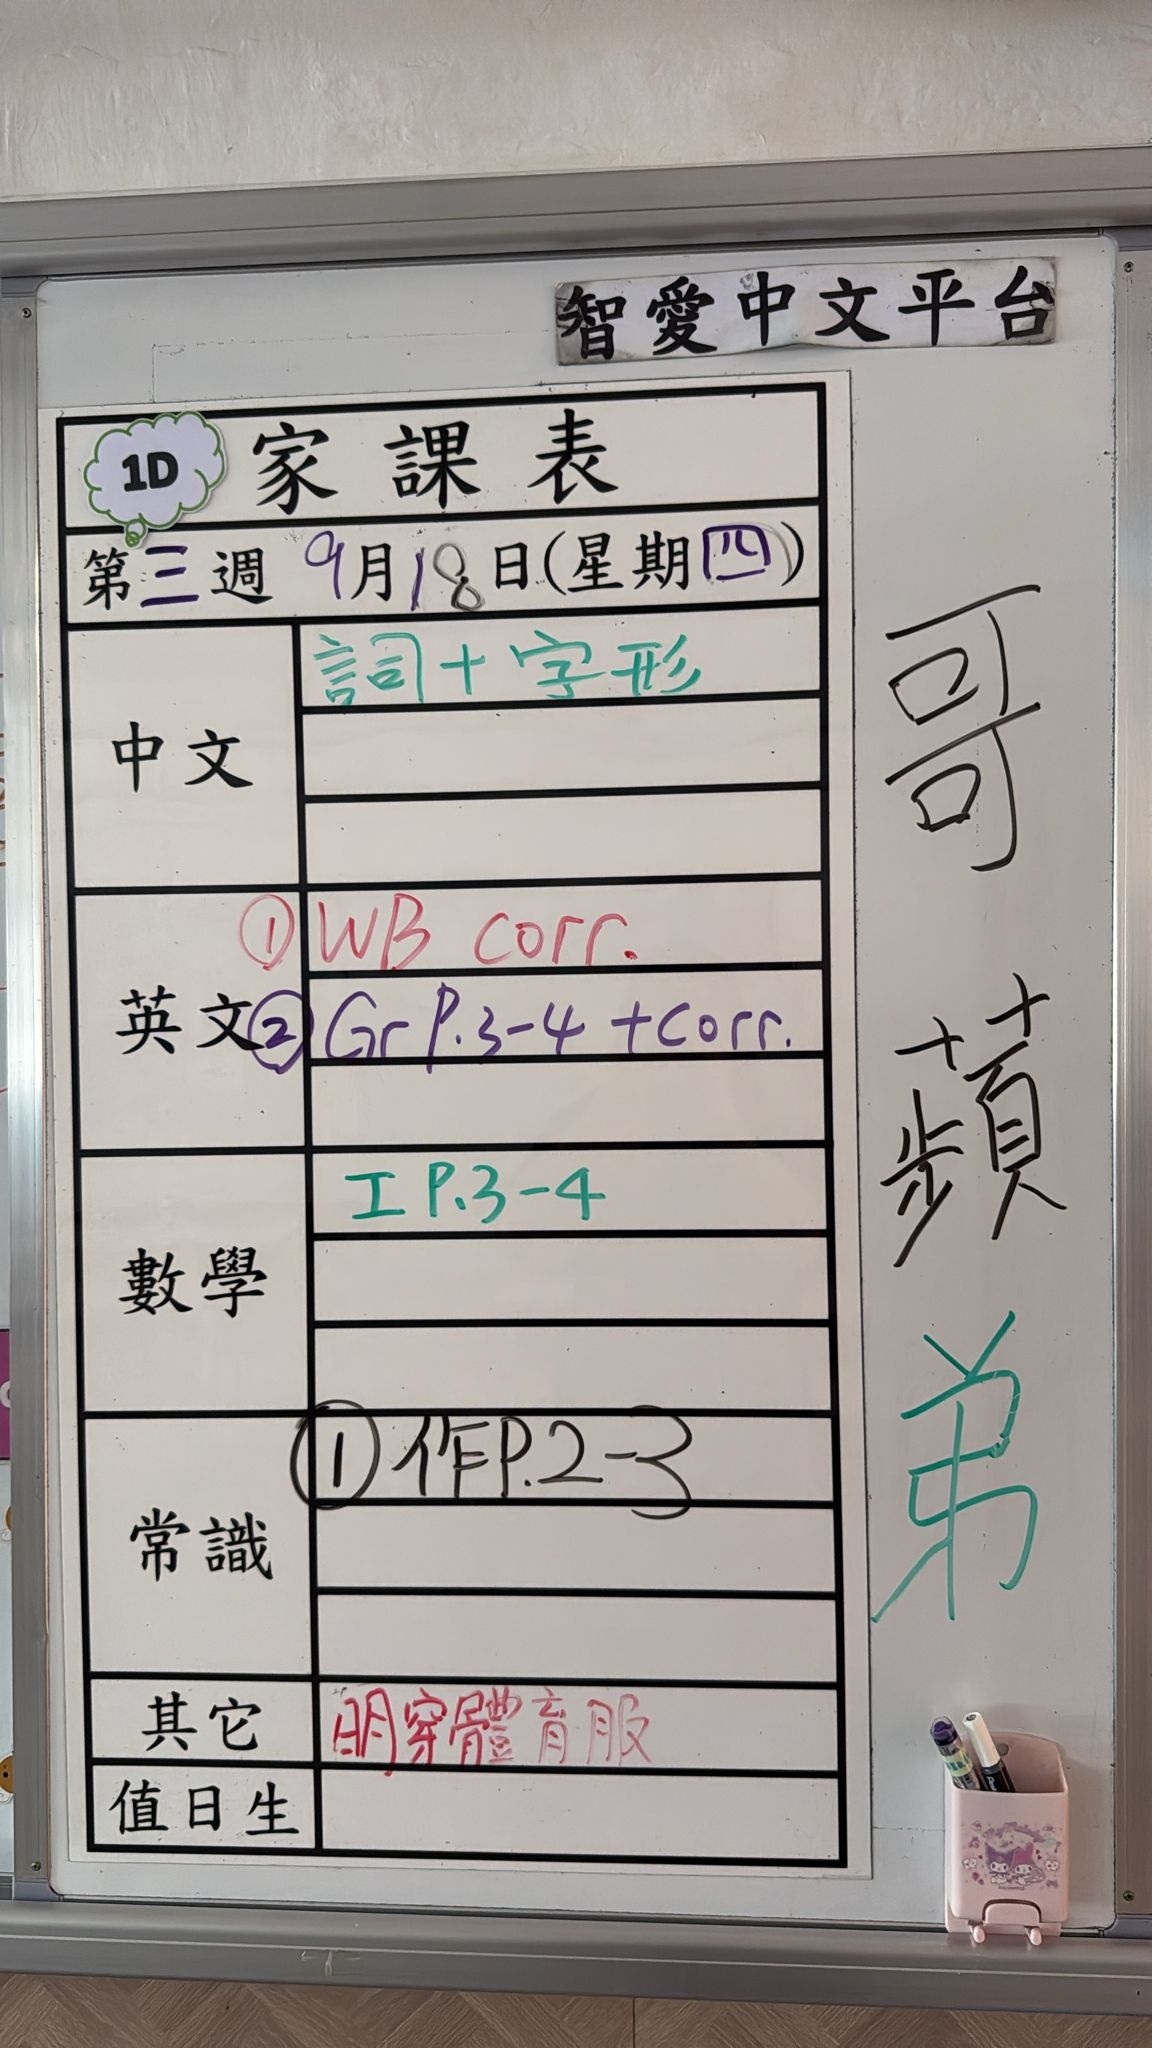 智愛中文平台
1D 家課表
第三週 9月18日(星期四)
中文
詞+字形
英文
① WB corr.
② Gr P.3-4 +corr.
數學
工 P.3-4
常識
① 作P.2-3
其它
明穿體育服
值日生
哥
蘋
弟